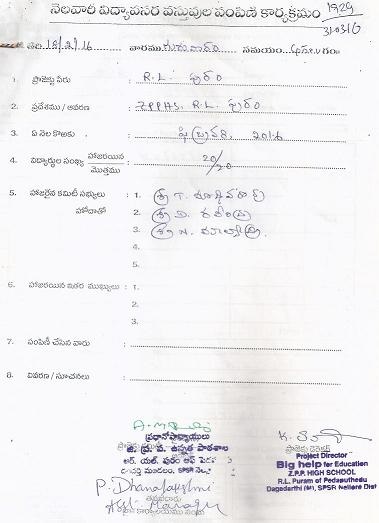 నెలవారీ విద్యావసర వస్తువుల పంపిణీ కార్యక్రమం
1929
31/03/6
తేది 18/2/16 వారము గురువారం సమయం
1. ప్రాజెక్టు పేరు R.L. పురం
2. ప్రదేశము / ఆవరణ ZPPHS. R.L. పురం
3. ఏ నెల కొఱకు ఫిబ్రవరి. 2016
4. విద్యార్థుల సంఖ్య హాజరయిన / మొత్తము 20/20
5. హాజరైన కమిటీ సభ్యులు 1. శ్రీ T.
హోదాతో 2. శ్రీ D. రవీంద్ర
3. శ్రీ N.
4.
5.
6. హాజరయిన ఇతర ముఖ్యులు : 1.
2.
3.
7. పంపిణీ చేసిన వారు
8. వివరణ / సూచనలు
ప్రధానోపాధ్యాయులు
జి. ప్ర. ప. ఉన్నత పాఠశాల
ఆర్. యల్. పురం ఆఫ్ పెద
మండలం, SPSR నెల్లూ
ప్రాజెక్టు డైరెక్టర్
Project Director
Big help for Education
Z.P.P. HIGH SCHOOL
R.L. Puram of Pedaputhedu
Dagadarthi (M), SPSR Nellore Dist
P. Dhanalakshmi